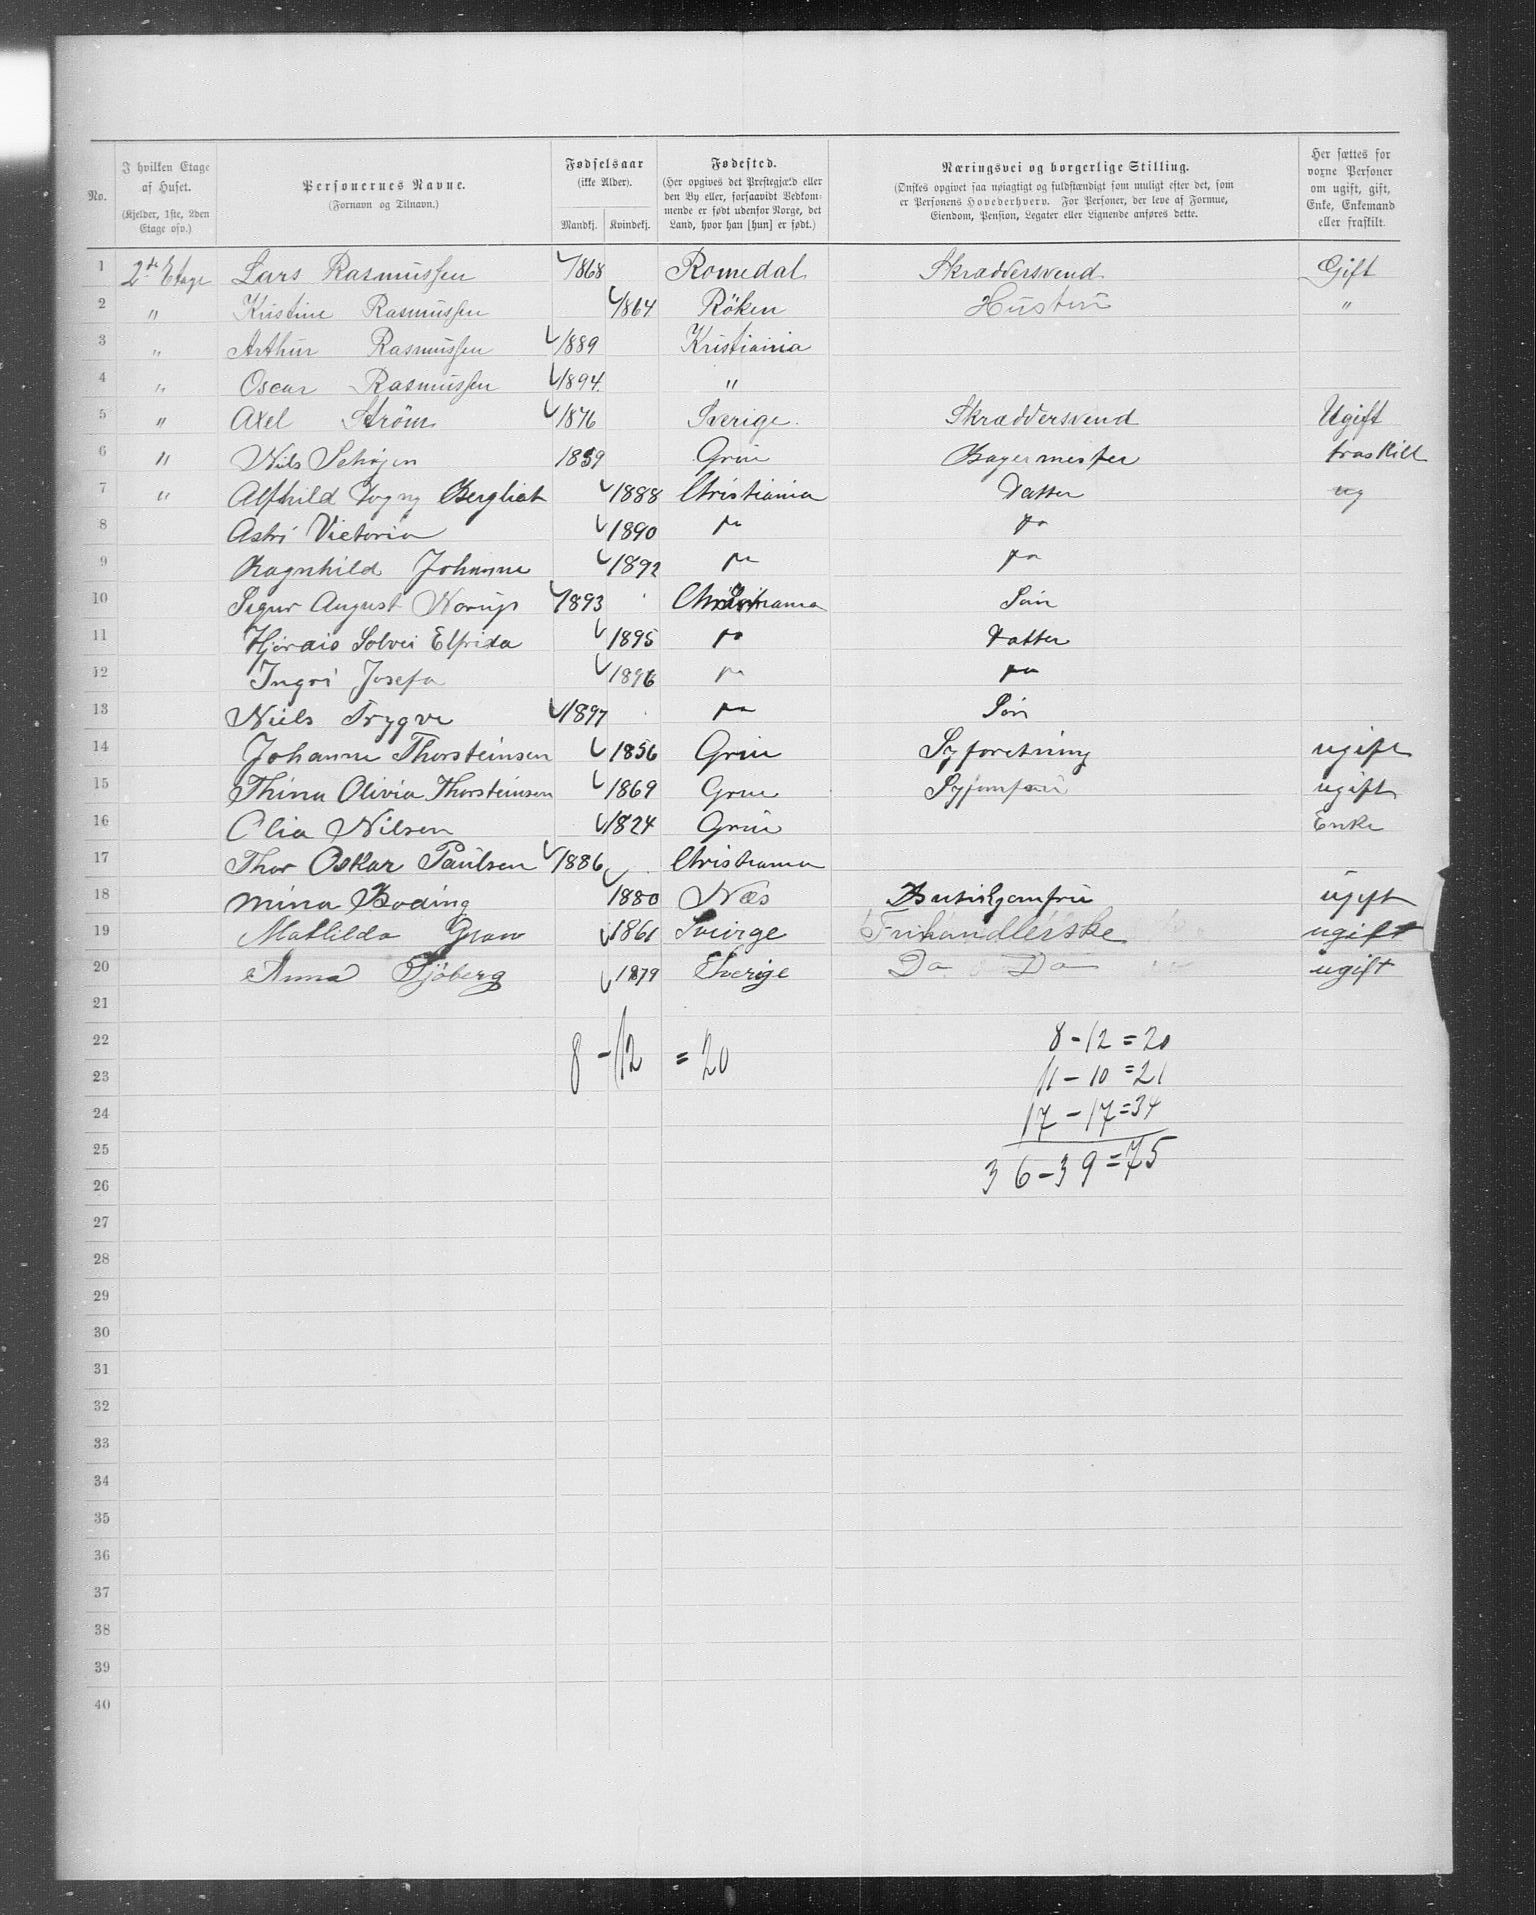 No. | I hvilken Etage af Huset. (Kjelder, 1ste, 2den Etage osv.) | Personernes Navne. (Fornavn og Tilnavn.) | Fødselsaar (ikke Alder). Mandkj. Kvindekj. | Fødested. (Her opgives det Prestegjæld eller den By eller, forsaavidt Vedkommende er født udenfor Norge, det Land, hvor han [hun] er født.) | Næringsvei og borgerlige Stilling. (Ønskes opgivet saa nøiagtigt og fuldstændigt som muligt efter det, som er Personens Hovederhverv. For Personer, der leve af Formue, Eiendom, Pension, Legater eller Lignende anføres dette. | Her sættes for voxne Personer om ugift, gift, Enke, Enkemand eller fraskilt.
1 2de Etage Lars Rasmussen 1868 Romedal Skræddersvend Gift
2 " Kristine Rasmussen 1864 Röken Hustru "
3 " Arthur Rasmussen 1889 Kristiania
4 " Oscar Rasmussen 1894. "
5 " Axel Ström 1876 Sverige. Skræddersvend Ugift
6 " Nils Schøyen 1859 Grue Bagermester fraskilt
7 " Alfhild Dagny Bergliot 1888 Christiania Datter ug
8 Astri Victoria 1890 do do
9 Ragnhild Johanne 1892 do do
10 Sigur August Norup 1893 Christiania Søn
11 Hjørdis Solvei Elfrida 1895 do Datter
12 Ingri Josefa 1896 do do
13 Niels Trygve 1897 do Søn
14 Johanne Thorsteinsen 1856 Grue Syforetning ugift
15 Thina Olivia Thorsteinsen 1869 Grue Syjomfru ugift
16 Olia Nilsen 1824 Grue Enke
17 Thor Oskar Paulsen 1886 Christiania
18 Mina Boding 1880 Næs Butikjomfru ugift
19 Mathilda Gran 1861 Sveirge Frihandlerske ugift
20 Anna Sjöberg 1879 Sverige Do Do ugift
21
22 8 - 12 = 20 8 - 12 = 20
23 11 - 10 = 21
24 17 - 17 = 34
25 36 - 39 = 75
26
27
28
29
30
31
32
33
34
35
36
37
38
39
40